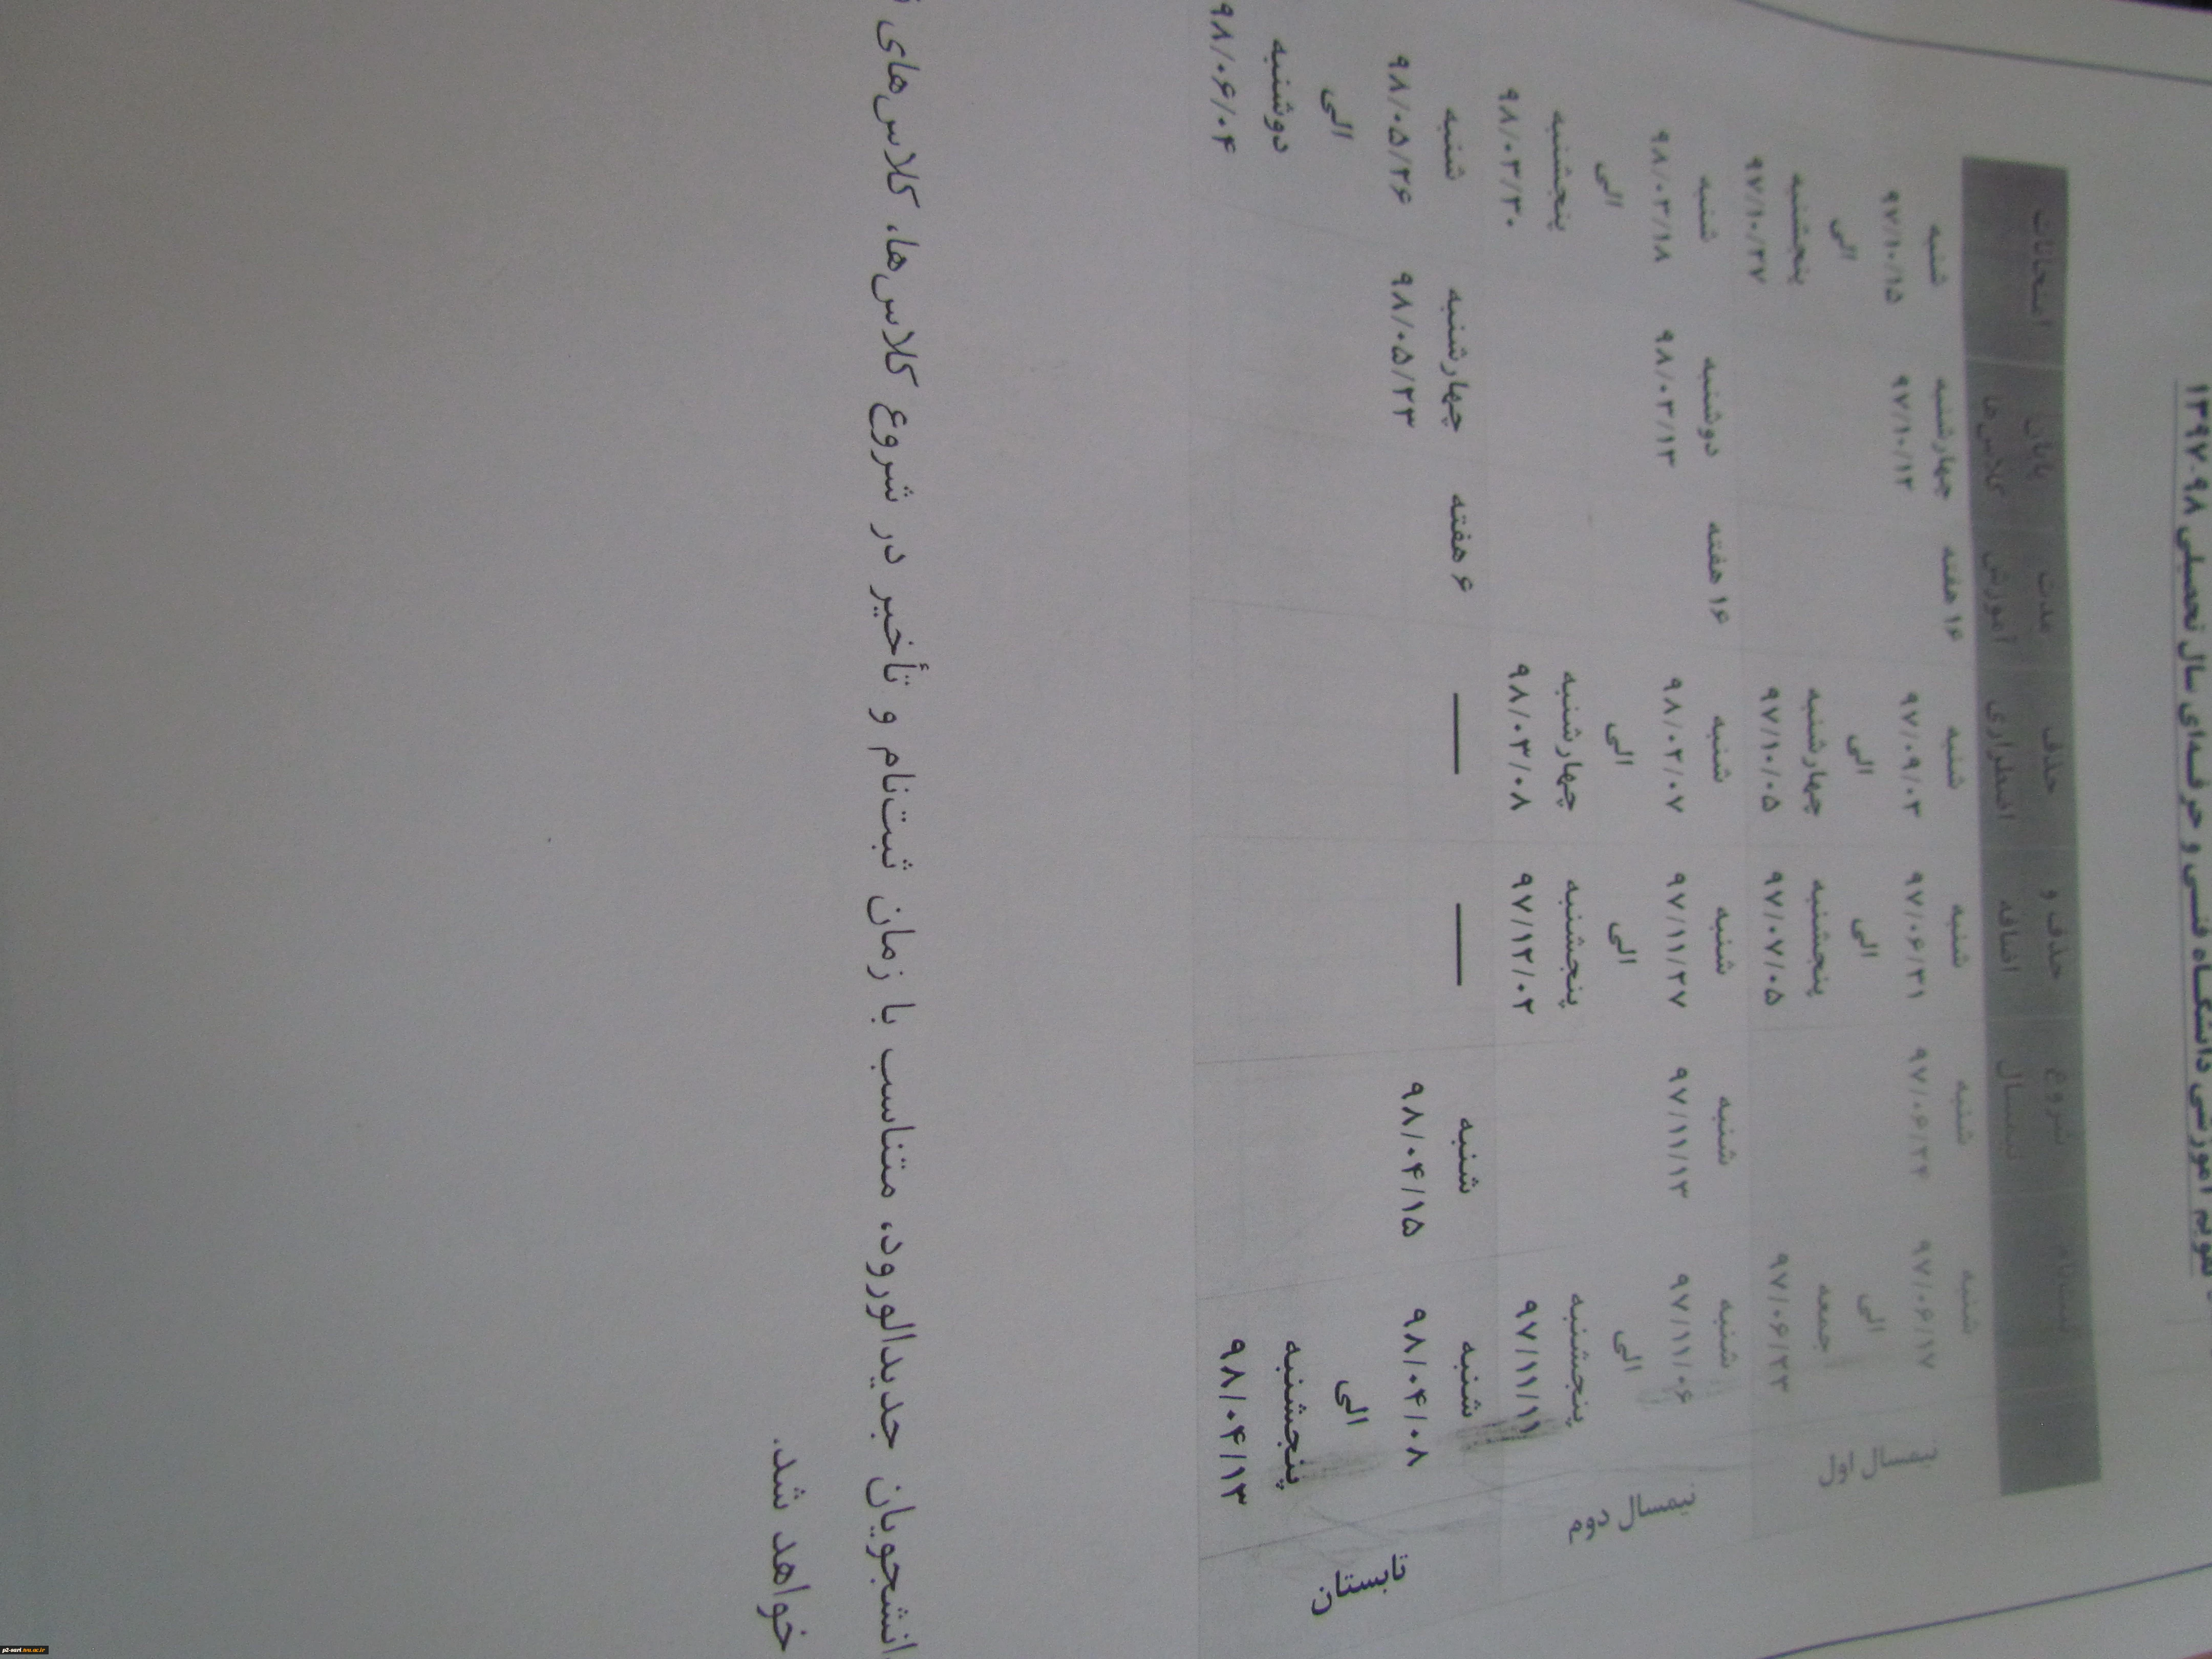 تقویم آموزشی دانشگاه فنی و حرفه‌ای سال تحصیلی ۹۸-۱۳۹۷
ثبت‌نام شروع نیمسال حذف و اضافه حذف اضطراری مدت آموزش پایان کلاس‌ها امتحانات
نیمسال اول
شنبه ۹۷/۰۶/۱۷ الی جمعه ۹۷/۰۶/۲۳
شنبه ۹۷/۰۶/۲۴
شنبه ۹۷/۰۶/۳۱ الی پنجشنبه ۹۷/۰۷/۰۵
شنبه ۹۷/۰۹/۰۳ الی چهارشنبه ۹۷/۱۰/۰۵
۱۶ هفته
چهارشنبه ۹۷/۱۰/۱۲
شنبه ۹۷/۱۰/۱۵ الی پنجشنبه ۹۷/۱۰/۲۷
نیمسال دوم
شنبه ۹۷/۱۱/۰۶ الی پنجشنبه ۹۷/۱۱/۱۱
شنبه ۹۷/۱۱/۱۳
شنبه ۹۷/۱۱/۲۷ الی پنجشنبه ۹۷/۱۲/۰۲
شنبه ۹۸/۰۲/۰۷ الی چهارشنبه ۹۸/۰۳/۰۸
۱۶ هفته
دوشنبه ۹۸/۰۳/۱۳
شنبه ۹۸/۰۳/۱۸ الی پنجشنبه ۹۸/۰۳/۳۰
تابستان
شنبه ۹۸/۰۴/۰۸ الی پنجشنبه ۹۸/۰۴/۱۳
شنبه ۹۸/۰۴/۱۵
—
—
۶ هفته
چهارشنبه ۹۸/۰۵/۲۳
شنبه ۹۸/۰۵/۲۶ الی دوشنبه ۹۸/۰۶/۰۴
انشجویان جدیدالورود، متناسب با زمان ثبت‌نام و تأخیر در شروع کلاس‌ها، کلاس‌های
خواهد شد.
p2-sari.tvu.ac.ir